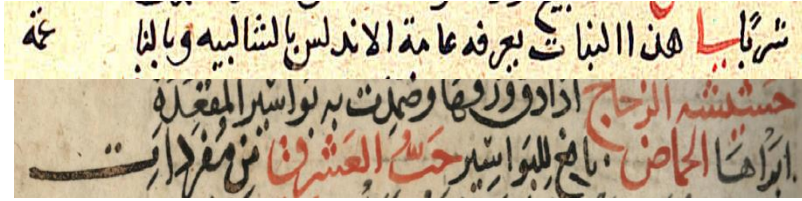 شربًا سا هذا النبات يعرفه عامة الاندلس بالشالبيه وبالنا عمة
حشيشه الزجاج اذا دق ورقها وضمدت به نواسير المقعدة
ابراها الحماض نافع للبواسير حب العشرق من مفردات